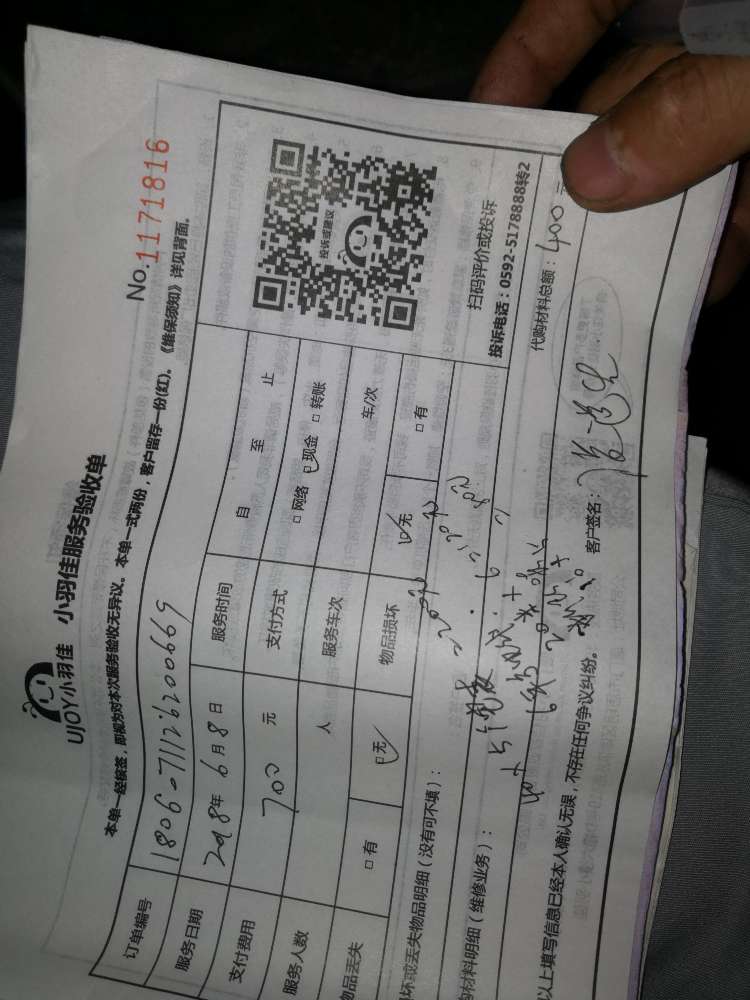 UJOY小羽佳 小羽佳服务验收单
No.1171816
本单一经核签，即视为对本次服务验收无异议。本单一式两份，客户留存一份(红)。《维保须知》详见背面。
订单编号 1806-0711126200669
服务日期 2018年 6月8日 服务时间 自 至 止
支付费用 700 元 支付方式 □网络 ☑现金 □转账
服务人数 人 服务车次 车/次
物品丢失 □有 ☑无 物品损坏 ☑无 □有
投诉或建议
扫码评价或投诉
投诉电话：0592-5178888转2
坏或丢失物品明细（没有可不填）：
购材料明细（维修业务）：
代购材料总额：400 元
以上填写信息已经本人确认无误，不存在任何争议纠纷。 客户签名：